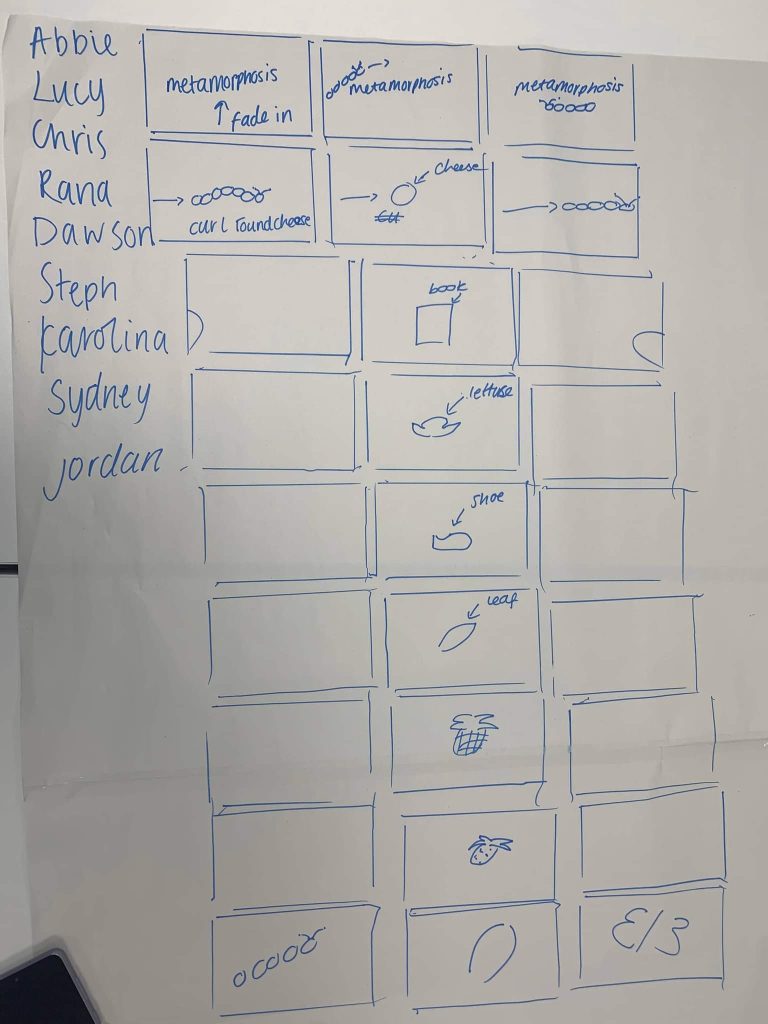 Abbie
Lucy
Chris
Rana
Dawson
Steph
Karolina
Sydney
Jordan
metamorphosis
fade in
metamorphosis
metamorphosis
curl round cheese
cheese
book
lettuse
shoe
leaf